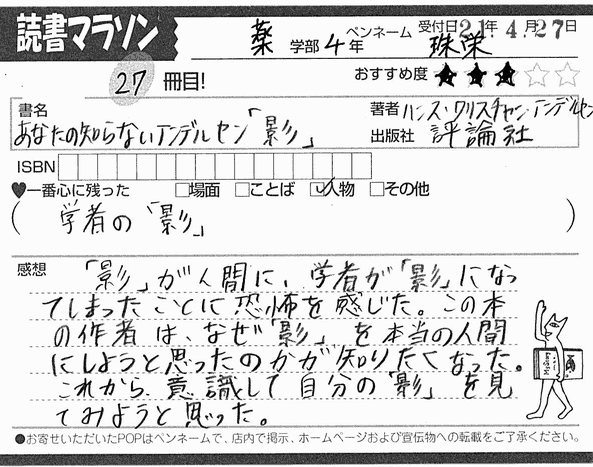 読書マラソン
薬 学部 4 年 ペンネーム 珠栄 受付日 21年 4月27日
27 冊目!
おすすめ度 ★★★☆☆
書名 あなたの知らないアンデルセン「影」
著者 ハンス・クリスチャン・アンデルセン
出版社 評論社
ISBN
♥一番心に残った □場面 □ことば ☑人物 □その他
( 学者の「影」 )
感想
「影」が人間に、学者が「影」になっ
てしまったことに恐怖を感じた。この本
の作者は、なぜ「影」を本当の人間
にしようと思ったのかが知りたくなった。
これから、意識して自分の「影」を見
てみようと思った。
●お寄せいただいたPOPはペンネームで、店内で掲示、ホームページおよび宣伝物への転載をご了承ください。